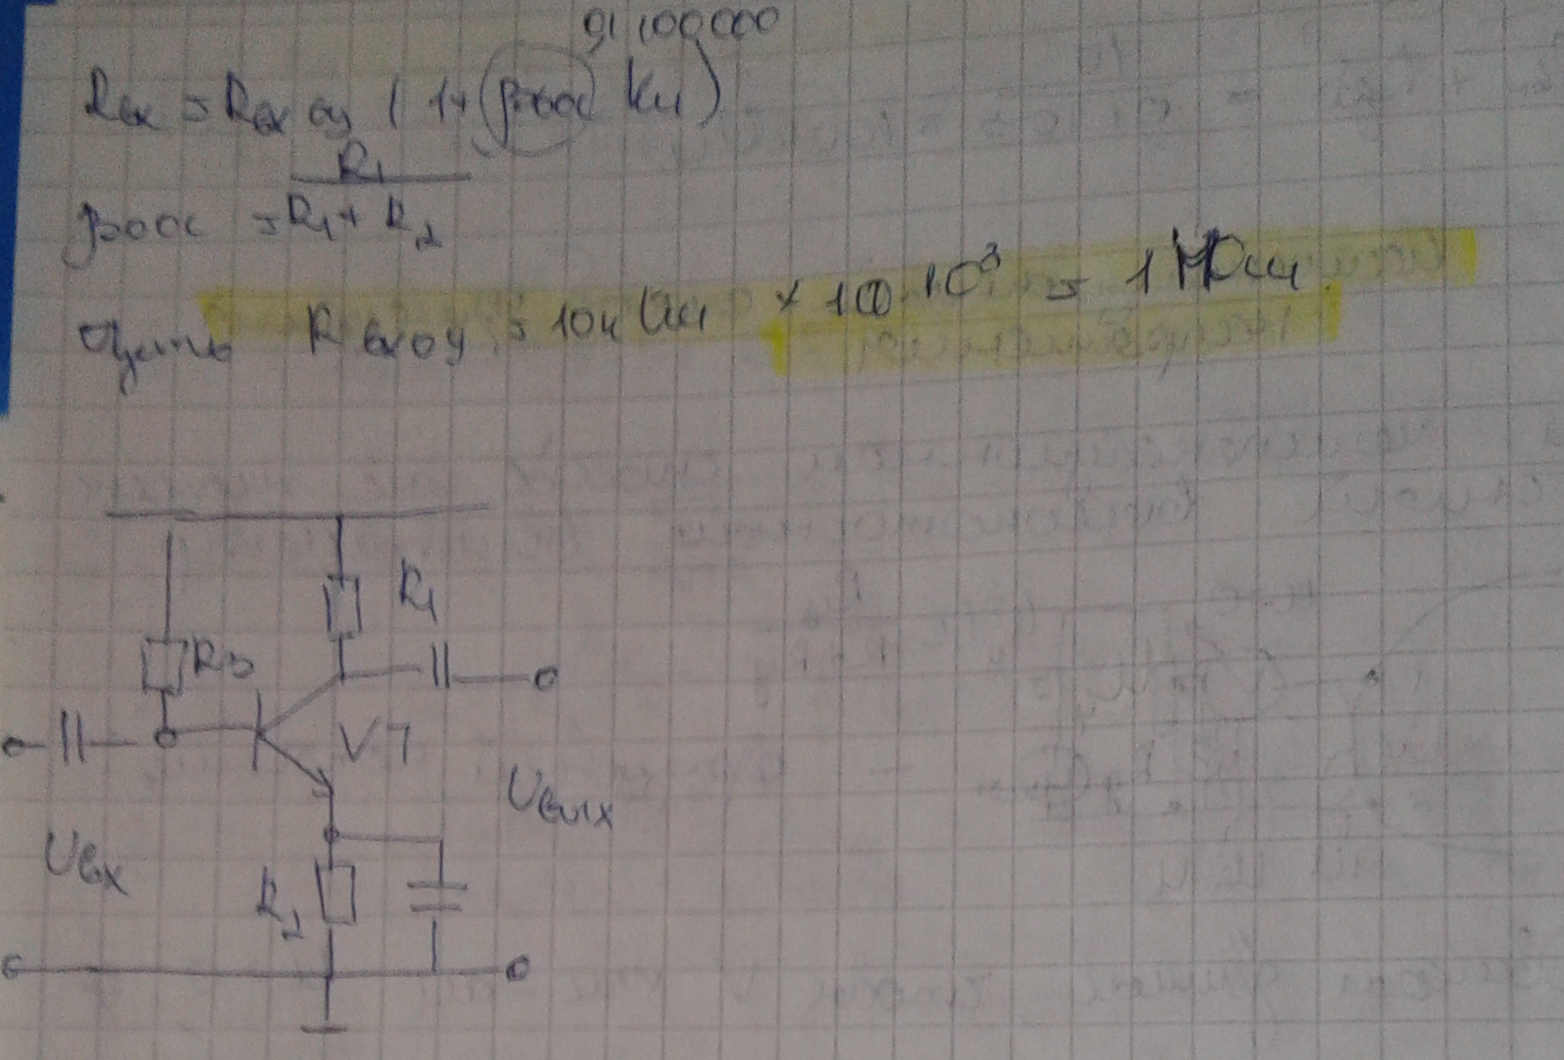 0,1 100000
Rвх = Rвх оу (1+ (βоос) Ku)
βоос = R1 / R1 + R2
Пусть Rвх оу = 10к Ом × 100 10³ = 1 МОм
R1
R3
VT
Uвых
Uвх
R2